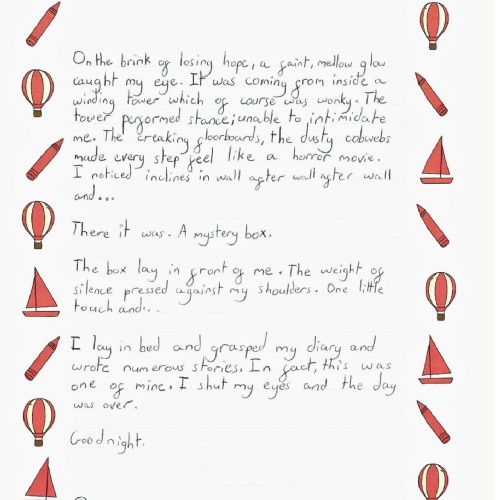 On the brink of losing hope, a faint, mellow glow
caught my eye. It was coming from inside a
winding tower which of course was wonky. The
tower performed stance; unable to intimidate
me. The creaking floorboards, the dusty cobwebs
made every step feel like a horror movie.
I noticed inclines in wall after wall after wall
and...
There it was. A mystery box.
The box lay in front of me. The weight of
silence pressed against my shoulders. One little
touch and...
I lay in bed and grasped my diary and
wrote numerous stories. In fact, this was
one of mine. I shut my eyes and the day
was over.
Goodnight.